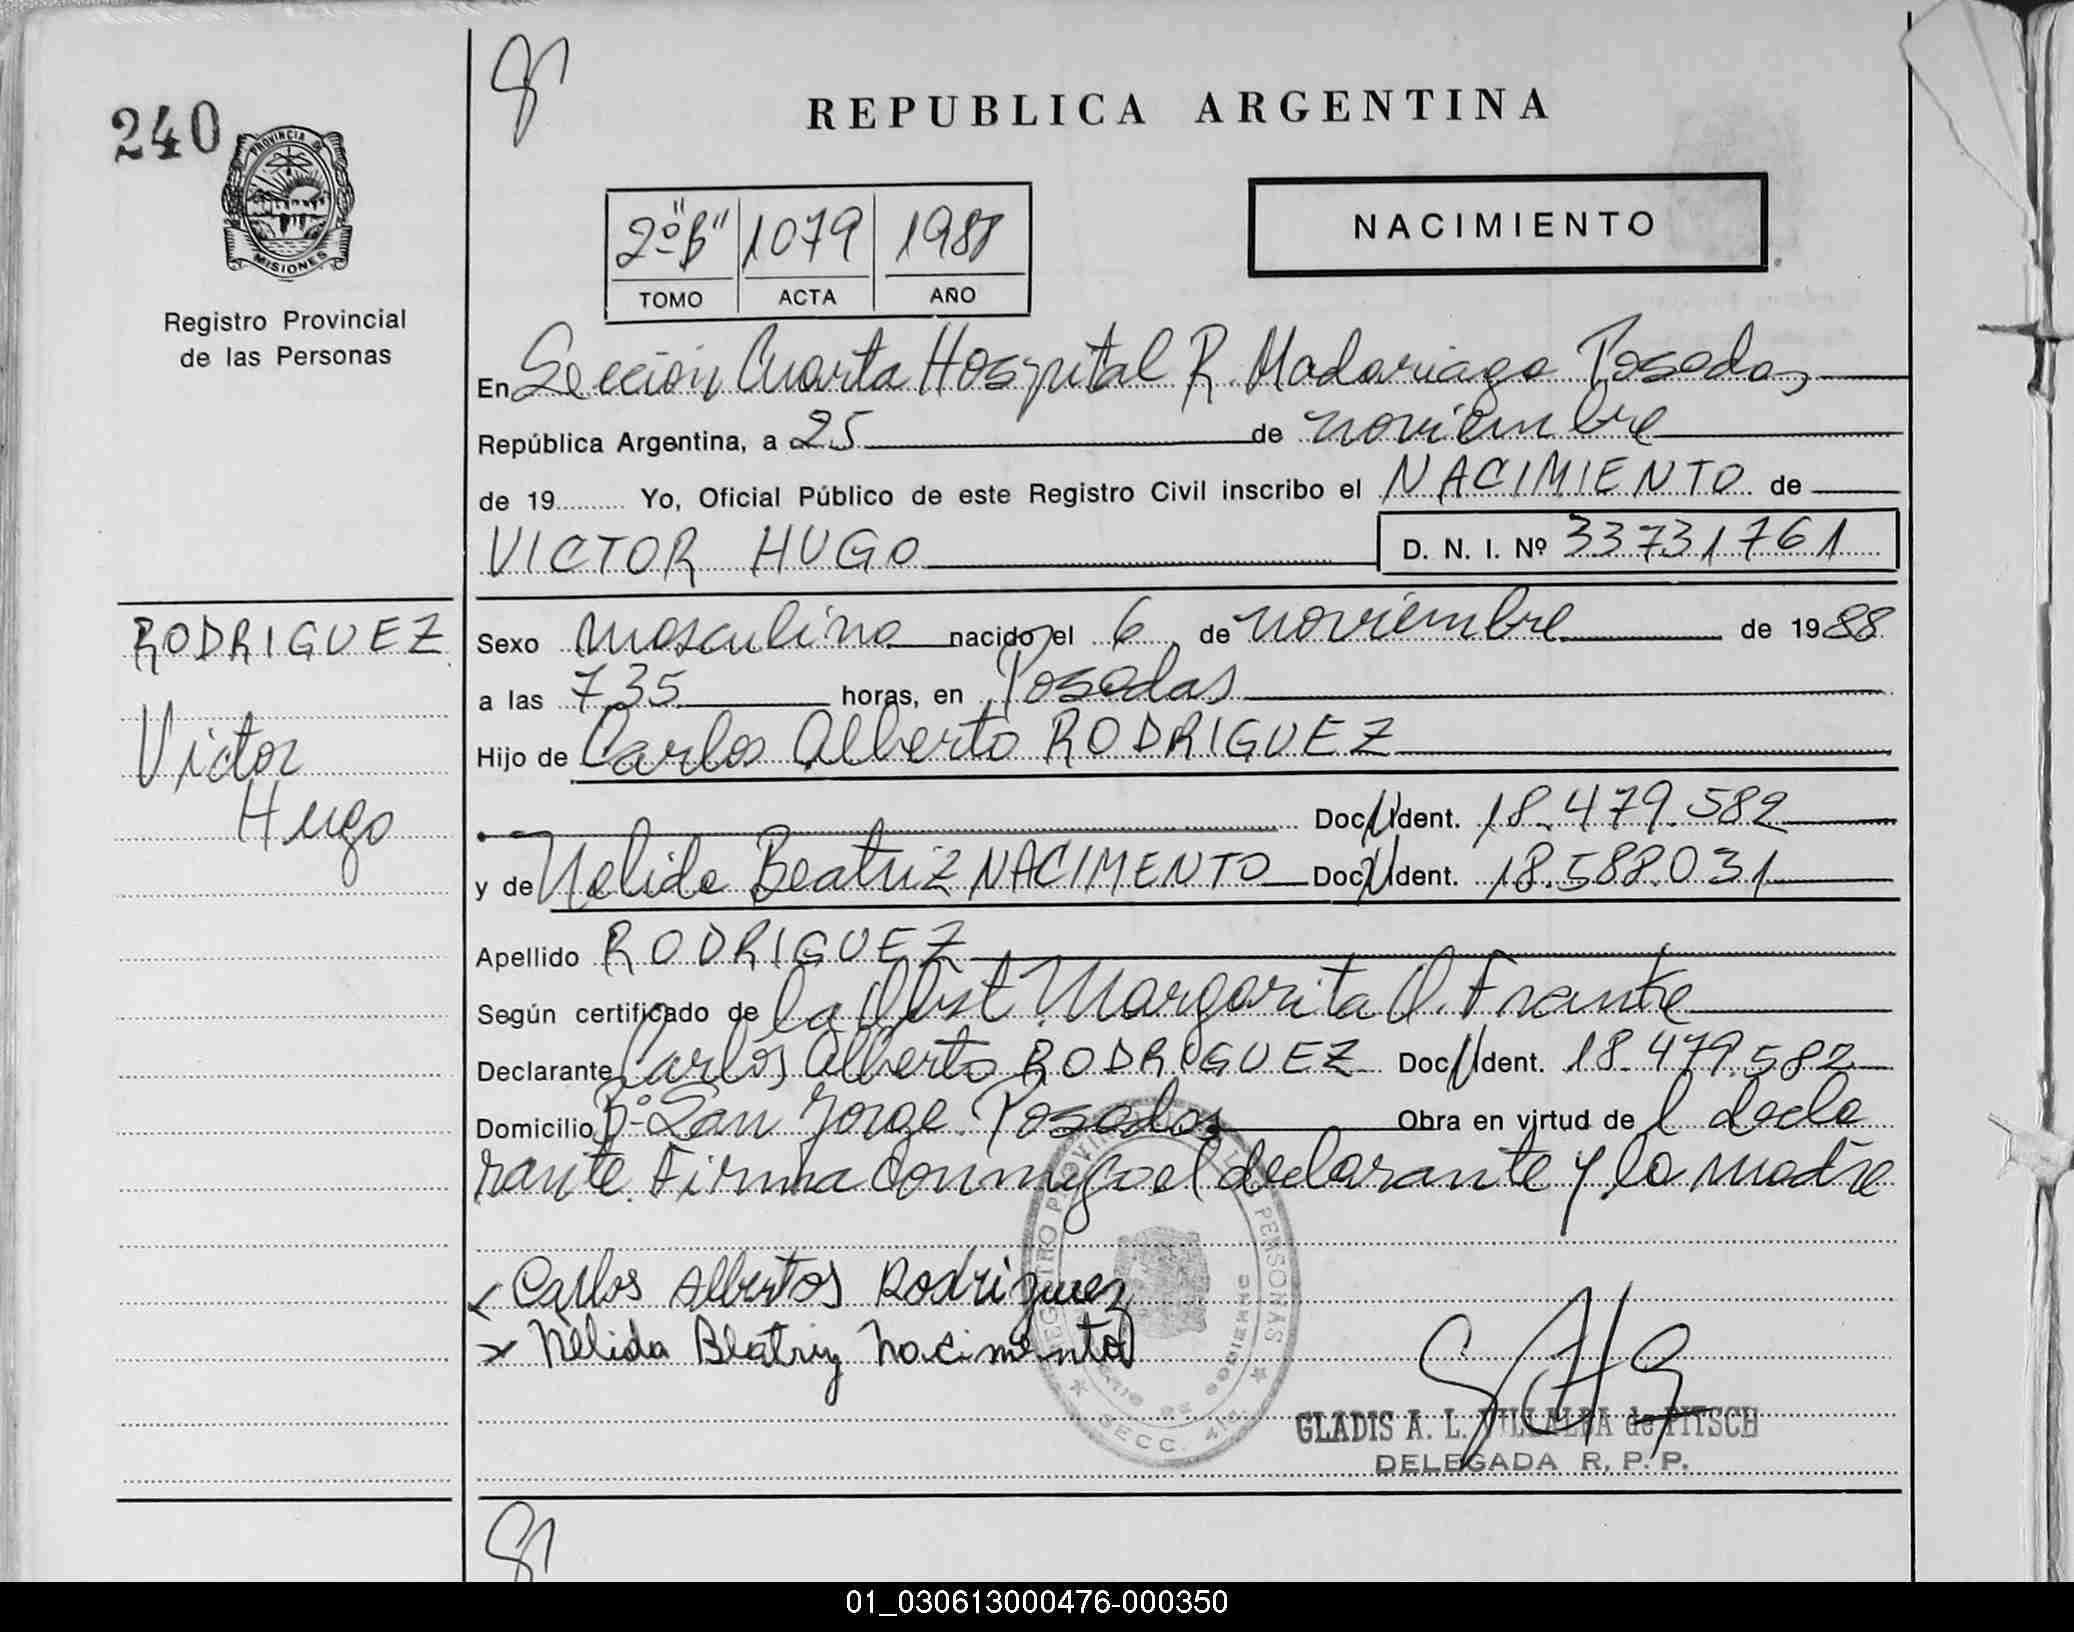 240
PROVINCIA DE
MISIONES
Registro Provincial
de las Personas
REPUBLICA ARGENTINA
NACIMIENTO
2º "B" 1079 1988
TOMO ACTA AÑO
En Sección Cuarta Hospital R. Madariaga Posadas
República Argentina, a 25 de noviembre
de 19.......... Yo, Oficial Público de este Registro Civil inscribo el NACIMIENTO de
VICTOR HUGO D. N. I. Nº 33731761
RODRIGUEZ
Victor
Hugo
Sexo masculino nacido el 6 de noviembre de 1988
a las 7,35 horas, en Posadas
Hijo de Carlos Alberto RODRIGUEZ
Doc. Ident. 18.479.582
y de Nelida Beatriz NACIMENTO Doc. Ident. 18.588.031
Apellido RODRIGUEZ
Según certificado de la Obst Margarita O. Franke
Declarante Carlos Alberto RODRIGUEZ Doc. Ident. 18.479.582
Domicilio Bº San Jorge Posadas Obra en virtud de l decla
rante. Firma conmigo el declarante y la madre
Carlos Albertos Rodriguez
Nélida Beatriz Nacimento
REGISTRO PROVINCIAL DE LAS PERSONAS
SECC. 4ta
GLADIS A. L. VILLALBA de PITSCH
DELEGADA R. P. P.
01_030613000476-000350